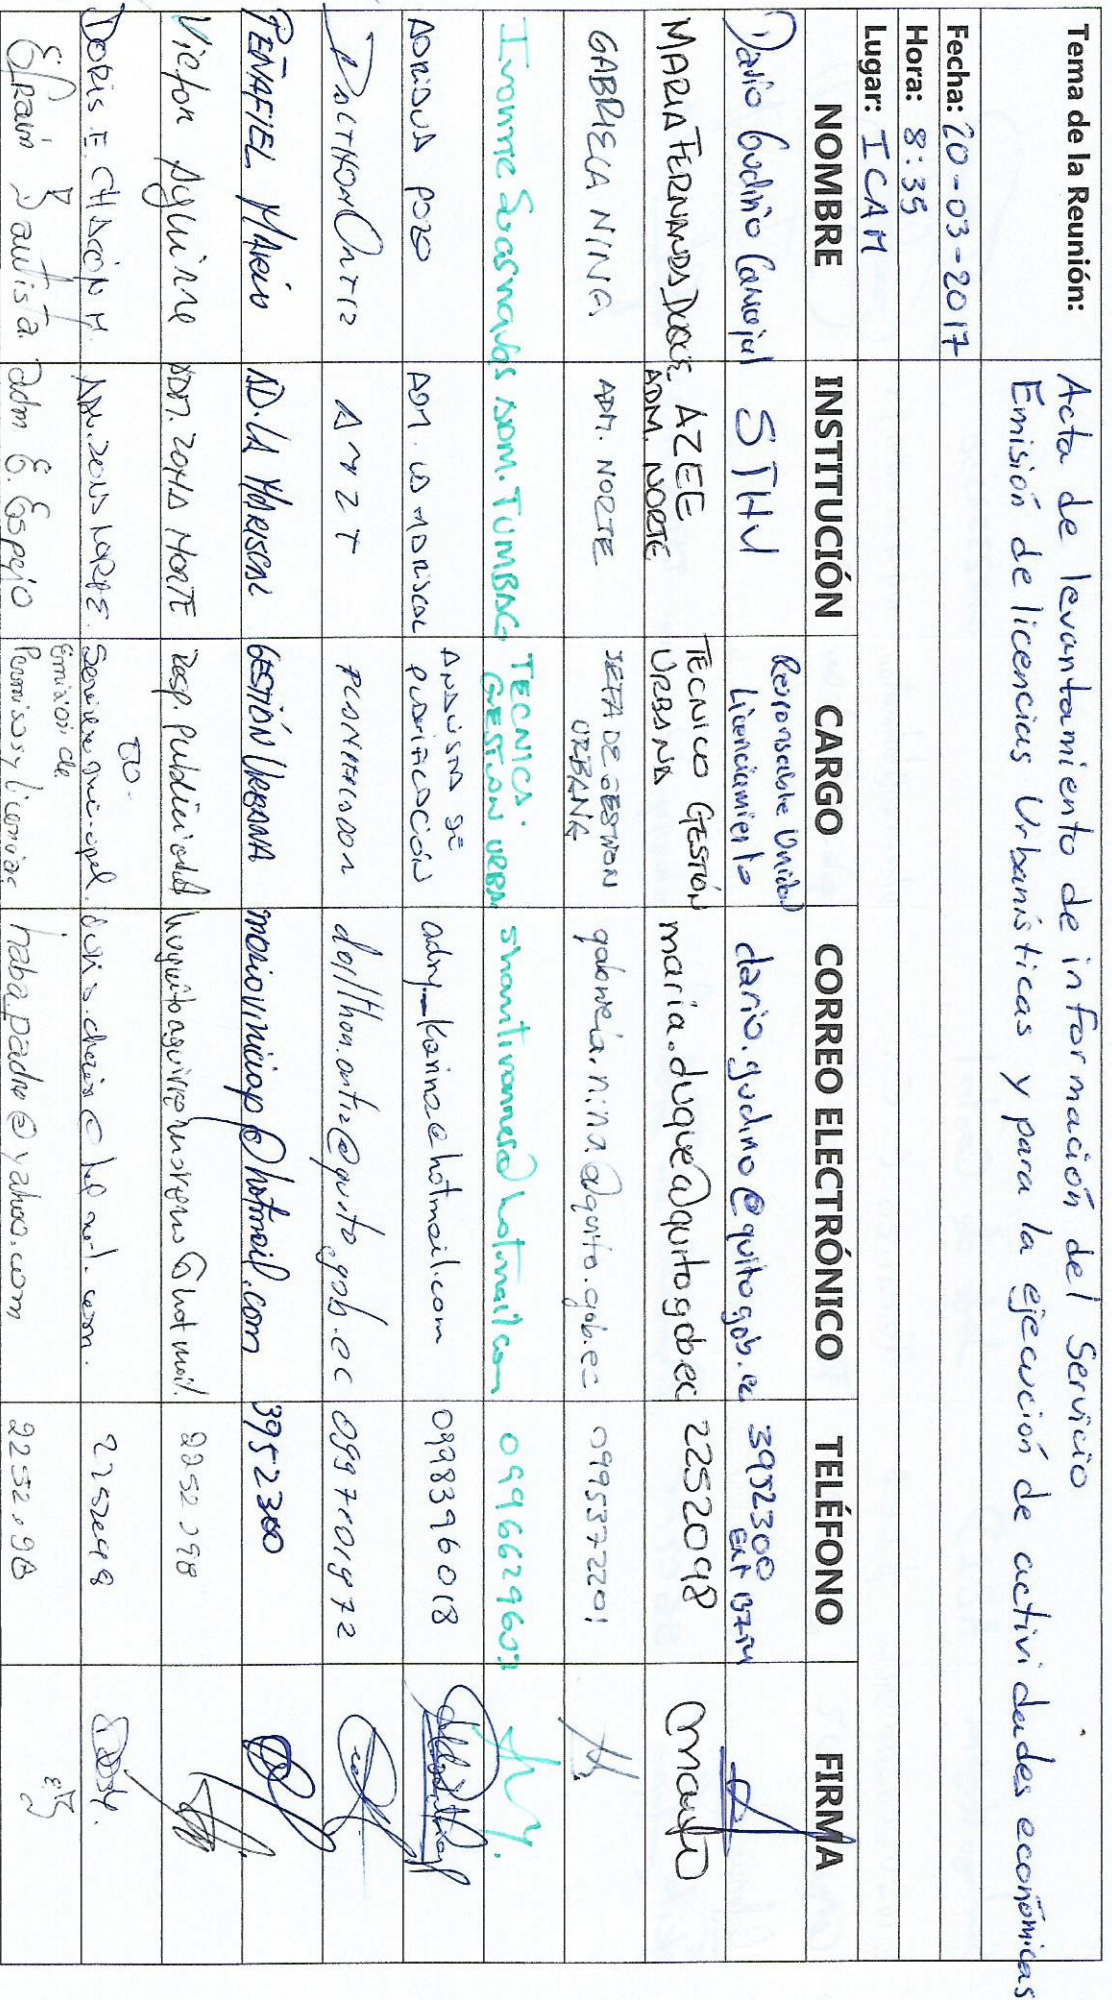 Tema de la Reunión:
Acta de levantamiento de información del Servicio
Emisión de licencias Urbanísticas y para la ejecución de actividades económicas
Fecha: 20-03-2017
Hora: 8:35
Lugar: ICAM
NOMBRE INSTITUCIÓN CARGO CORREO ELECTRÓNICO TELÉFONO FIRMA
Darío Gudiño Carvajal STHV Responsable Unidad Licenciamiento dario.gudino@quito.gob.ec 3952300 EXT
MARIA FERNANDA DUQUE AZEE ADM. NORTE TECNICO GESTIÓN URBANA maria.duque@quito.gob.ec 2252098
GABRIELA NINA ADM. NORTE JEFA DE GESTION URBANA gabriela.nina@quito.gob.ec 0995372201
Ivonne ADM. TUMBACO TECNICA GESTION URBANA shantivonnes@hotmail.com
ADRIANA POZO ADM. LA MARISCAL ANALISTA DE PLANIFICACIÓN adry_karina@hotmail.com 0998396018
Dolthon Ortiz AMZT PLANIFICADOR dolthon.ortiz@quito.gob.ec
PEÑAFIEL MARIO AD. LA MARISCAL GESTIÓN URBANA marioviniciop@hotmail.com 3952300
Victor Aguirre ADM. ZONA NORTE Resp. Publicidad huguitoaguirremoreno@hotmail.
DORIS E. CHACÓN M. ADM. ZONA NORTE. 2252
Efraín Bautista adm E. Espejo Emisión de Permisos y licencias habapadre@yahoo.com